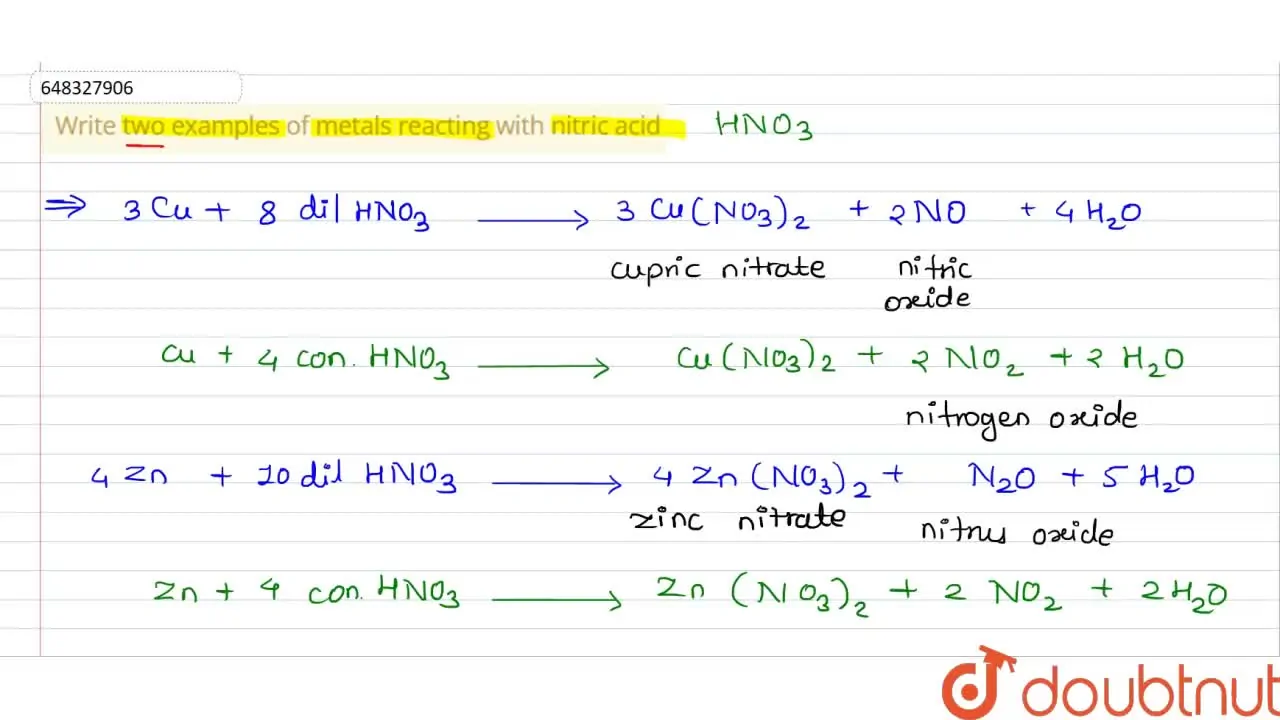 648327906
Write two examples of metals reacting with nitric acid HNO3
⇒ 3 Cu + 8 dil HNO3 ⟶ 3 Cu(NO3)2 + 2NO + 4H2O
cupric nitrate nitric
oxide
Cu + 4 con. HNO3 ⟶ Cu(NO3)2 + 2 NO2 + 2 H2O
nitrogen oxide
4 Zn + 10 dil HNO3 ⟶ 4 Zn(NO3)2 + N2O + 5 H2O
zinc nitrate nitrus oxide
Zn + 4 con. HNO3 ⟶ Zn (NO3)2 + 2 NO2 + 2H2O
doubtnut